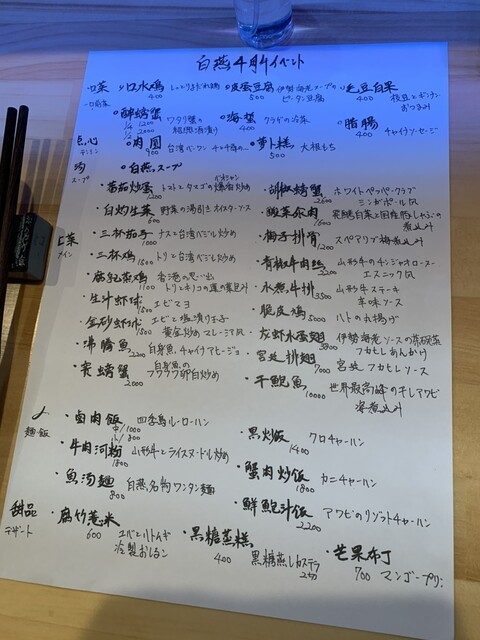 白燕4月イベント
口菜 ・口水鸡 400 しっとりよだれ鶏 ・皮蛋豆腐 500 伊勢海老ソースのピータン豆腐 ・毛豆白果 400
一口前菜 枝豆とギンナンおつまみ
・醉螃蟹 1/4 1200 1/2 2200 ワタリ蟹の紹興酒漬け ・海蜇 400 クラゲの冷菜 ・腊腸 400 チャイナソーセージ
点心 ・肉圓 900 台湾バーワン ・萝卜糕 500 大根もち
汤 ・白燕スープ
スープ
・蕃茄炒蛋 1200 トマトとタマゴの爆香炒め
・白灼生菜 700 野菜の湯引きオイスターソース
・三杯茄子 1000 ナスと台湾バジル炒め
・三杯鸡 1500 トリと台湾バジル炒め
・腐乳蒸鸡 1100 香港の思い出
・生汁虾球 1500 エビマヨ
・金砂虾球 1500 エビと塩漬け玉子 黄金炒めマレーシア風
・沸腾魚 2200 白身魚、チャイナアヒージョ
・賽螃蟹 2000 白身魚のフワフワ卵白炒め
・胡椒螃蟹 2600 ホワイトペッパークラブ シンガポール風
・酸菜汆肉 1600 発酵白菜と回魚豚しゃぶの煮込み
・梅子排骨 1200 スペアリブ梅煮込み
・青椒牛肉絲 2200 山形牛のチンジャオロースー エスニック風
・水煮牛排 3500 山形牛ステーキ 辛味ソース
・脆皮鳩 5000 ハトの丸揚げ
・龙虾水蛋翅 3800 伊勢海老ソースの茶碗蒸 フカヒレあんかけ
・宮廷排翅 7000 宮廷フカヒレソース
・干鮑魚 10000 世界最高峰の干しアワビ 姿煮込み
麺・飯
・卤肉飯 中/1000 小/800 四季島ルーローハン
・牛肉河粉 1800 山形牛とライスヌードル炒め
・魚汤麺 800 白燕名物ワンタン麺
・黒炒飯 1400 クロチャーハン
・蟹肉炒飯 1800 カニチャーハン
・鮮鮑汁飯 2200 アワビのリゾットチャーハン
甜品 ・腐竹薏米 600 ユバとハトムギ 冷製おしるこ ・黒糖蒸糕 400 黒糖蒸しカステラ 2切 ・芒果布丁 700 マンゴープリン
デザート